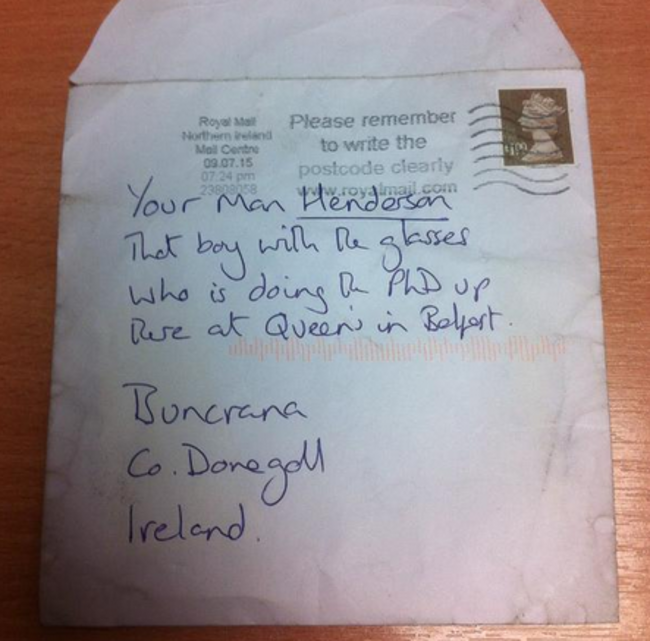 Royal Mail
Northern Ireland
Mail Centre
09.07.15
07:24 pm
23808058
Please remember
to write the
postcode clearly
www.royalmail.com
Your Man Henderson
That boy with the glasses
who is doing the PhD up
there at Queen's in Belfast.
Buncrana
Co. Donegall
Ireland.